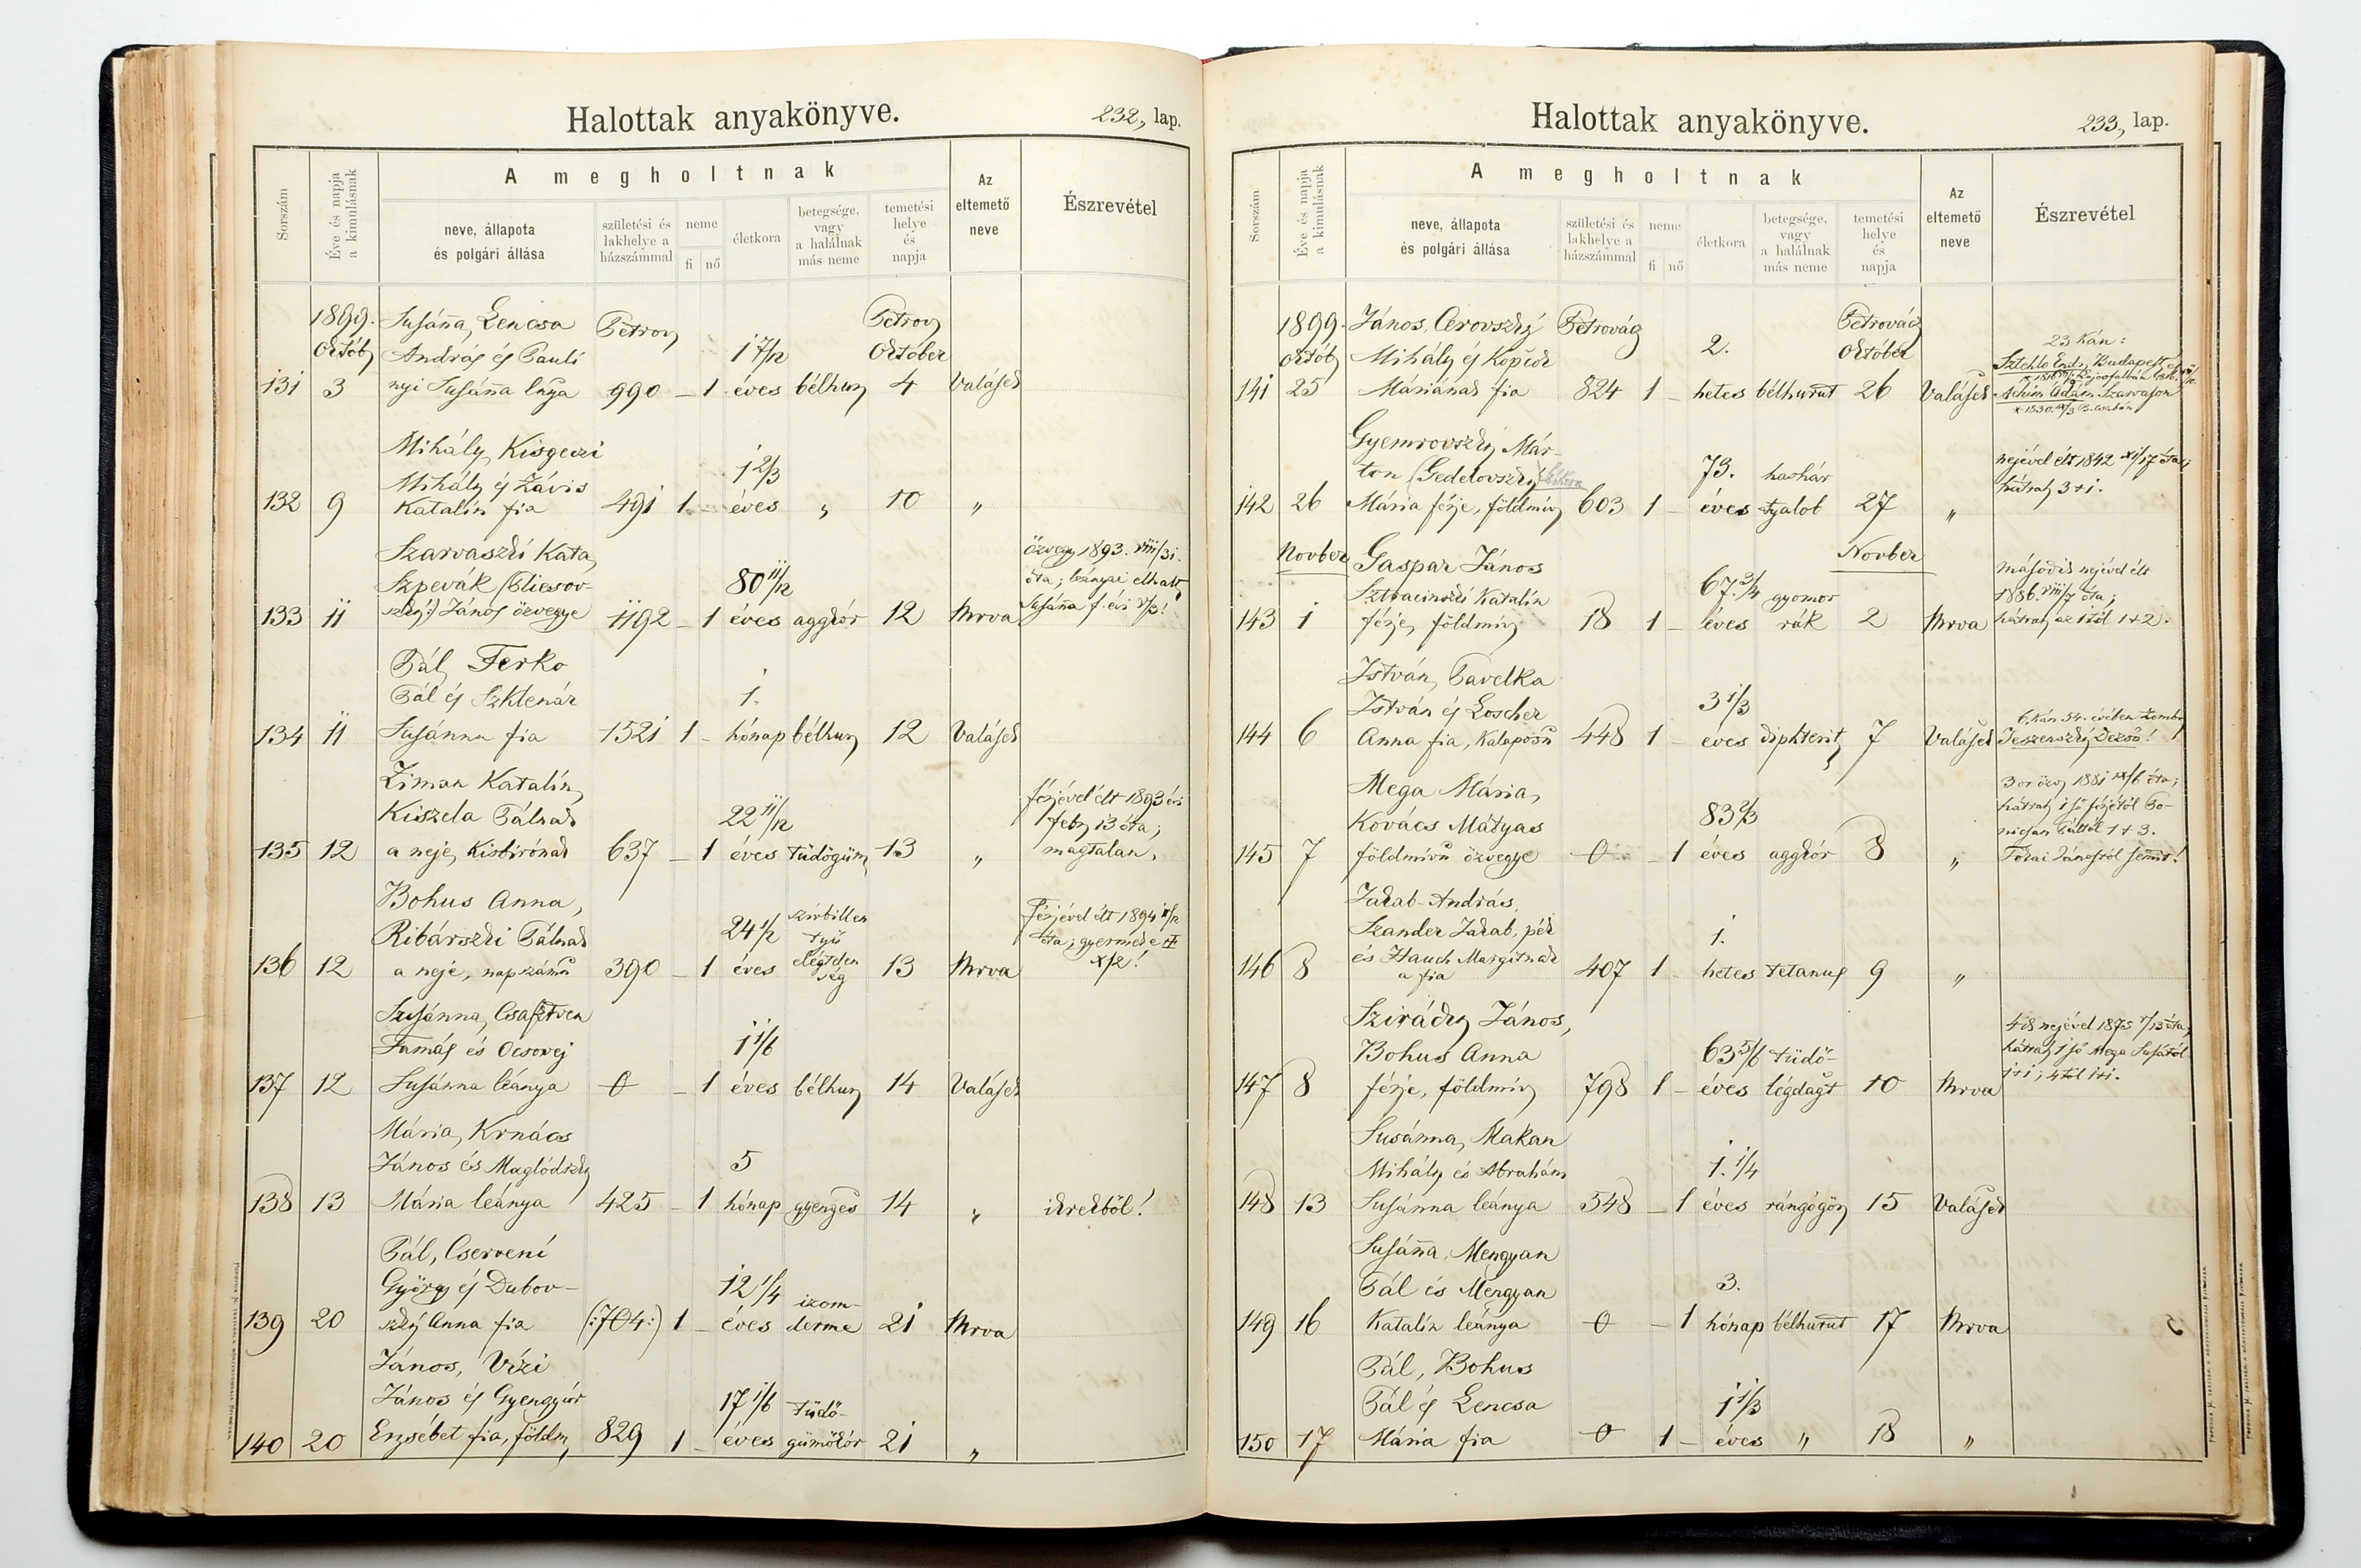 Halottak anyakönyve.
232, lap.
Sorszám
Éve és napja a kimulásnak
A megholtnak
neve, állapota és polgári állása
születési és lakhelye a házszámmal
neme
fi nő
életkora
betegsége, vagy a halálnak más neme
temetési helye és napja
Az eltemető neve
Észrevétel
1899. Susánna, Lencsa Petrov Petrov
Októb András és Pauli 1 7/12 Október
131 3 nyi Susánna lnya 990 – 1 éves bélhur 4 Valásek
Mihály, Kisgeczi
Mihály és Závis 1 2/3
132 9 Katalin fia 491 1 – éves „ 10 „
Szarvaszki Kata, özvegy 1893. VIII/31.
Szpevák (Pliesov- 80 11/12 óta; leányai elhalt
szky:) János özvegye
133 11 1192 – 1 éves aggkór 12 Mrva Susánna f. évi
Pál, Ferko
Pál és Szklenár 1.
134 11 Susánna fia 1521 1 – hónap bélhur 12 Valásek
Ziman Katalin,
Kiszela Pálnak 22 11/12 férjével élt 1893 évi feb. 13 óta;
135 12 a neje, Kisbirónak 637 – 1 éves tüdőgüm 13 „ magtalan.
Bohus Anna,
Ribárszki Pálnak 24 1/2 szívbillen
tyű
136 12 a neje, napszámos 390 – 1 éves elégtelen
ség 13 Mrva
férjével élt 1894 óta; gyermeke
Susánna, Csasztven
Tamás és Ocsovej 1 1/6
137 12 Susánna leánya 0 – 1 éves bélhur 14 Valásek
Mária, Krnács
János és Maglódszky 5
138 13 Mária leánya 425 – 1 hónap gyenges 14 „ ikrekből!
Pál, Cserveni
György és Dubov- 12 1/4 izom-
139 20 szky Anna fia (:704:) 1 – éves derme 21 Mrva
János, Vízi
János és Gyengyör 17 1/6 tüdő-
140 20 Erzsébet fia, földm 829 1 – éves gümőkór 21 „
Halottak anyakönyve.
233, lap.
Sorszám
Éve és napja a kimulásnak
A megholtnak
neve, állapota és polgári állása
születési és lakhelye a házszámmal
neme
fi nő
életkora
betegsége, vagy a halálnak más neme
temetési helye és napja
Az eltemető neve
Észrevétel
1899. János, Cerovszky Petrovácz Petrovácz 23 kán:
Októb Mihály és Kopčok 2. Október Sztehlo Budapest
141 25 Máriának fia 824 1 – hetes bélhurut 26 Valásek Achim Ádám Szarvason
Gyemrovszky, Már-
ton (Gedelovszky 73. hashár nejével élt 1842 XI/17 óta;
142 26 Mária férje, földmív 603 1 – éves tyalob 27 „ hátrah 3+1.
Novber Gaspar János Novber második nejével élt
Sztracinszki Katalin 67 3/4 gyomor 1886. VIII/7 óta;
143 1 férje, földmív 18 1 – éves rák 2 Mrva hátrah az 1től 1+2.
István, Pavelka
István és Loscher 3 1/3 6kán 54. évében
144 6 Anna fia, Kalapos 448 1 – éves diphterit 7 Valásek Jeszenszky Dezső!
Mega Mária, 3 or özv 1881 óta;
Kovács Mátyas 83 2/3 hátrah 1ső férjétől
145 7 földmívű özvegye 0 – 1 éves aggkór 8 „ Páltól 1+3.
Tokai Jánostól semmit!
Jakab András,
Szander Jakab, pék 1.
146 8 és Hauch Margitnak
a fia 407 1 – hetes tetanus 9 „
Szirády János, 4ik nejével 1875 óta,
Bohus Anna 63 5/6 tüdő- hátrah 1ső Mega Susától
147 8 férje, földmív 798 1 – éves légdagt 10 Mrva 1+1; 4től 1+1.
Susánna, Makan
Mihály és Abrahám 1. 1/4
148 13 Susánna leánya 548 – 1 éves rángógör 15 Valásek
Susánna, Mengyan
Pál és Mengyan 3.
149 16 Katalin leánya 0 – 1 hónap bélhurut 17 Mrva
Pál, Bohus
Pál és Lencsa 1 1/3
150 17 Mária fia 0 1 – éves „ 18 „